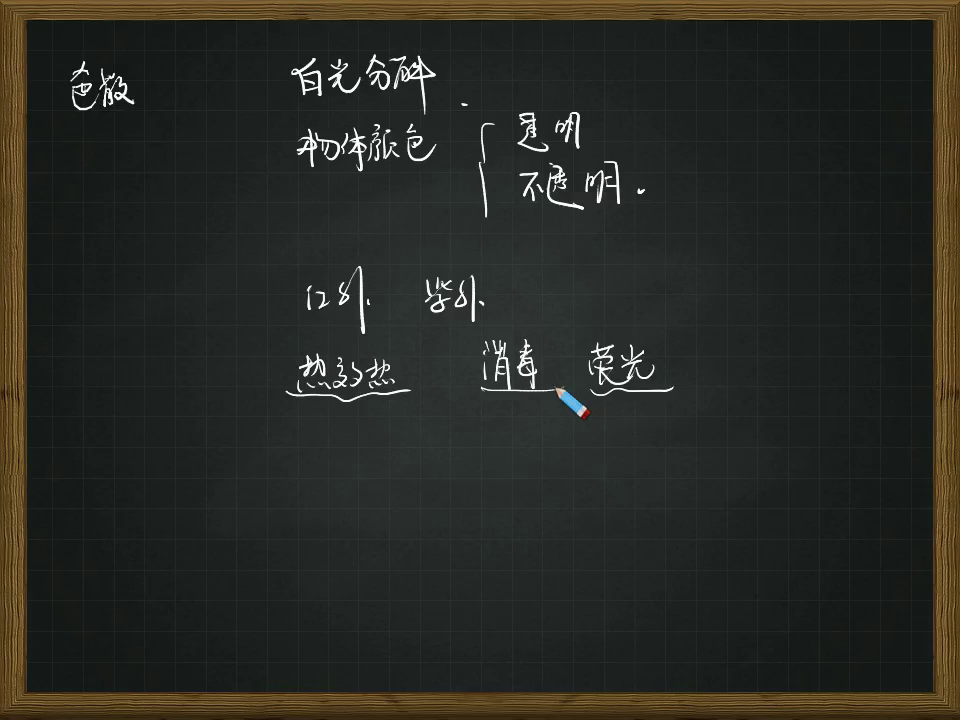 色散
白光分解
物体颜色
透明
不透明.
红外 紫外
热效热 消毒 荧光